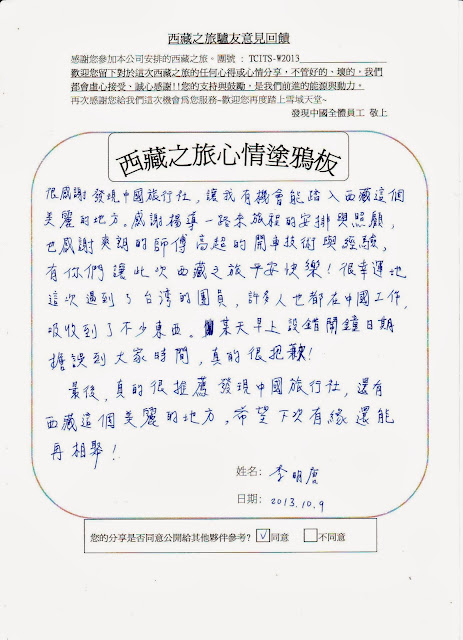 西藏之旅驢友意見回饋
感謝您參加本公司安排的西藏之旅。團號 : TCITS-W2013
歡迎您留下對於這次西藏之旅的任何心得或心情分享，不管好的、壞的，我們
都會虛心接受、誠心感謝!!您的支持與鼓勵，是我們前進的能源與動力。
再次感謝您給我們這次機會為您服務~歡迎您再度踏上雪域天堂~
發現中國全體員工 敬上
西藏之旅心情塗鴉板
很感謝發現中國旅行社，讓我有機會能踏入西藏這個
美麗的地方。感謝楊導一路來旅程的安排與照顧，
也感謝爽朗的師傅高超的開車技術與經驗，
有你們讓此次西藏之旅平安快樂！很幸運地
這次遇到了台湾的團員，許多人也都在中國工作，
吸收到了不少東西。某天早上設錯鬧鐘日期
擔誤到大家時間，真的很抱歉！
最後，真的很推薦發現中國旅行社，還有
西藏這個美麗的地方，希望下次有緣還能
再相聚！
姓名: 李明
日期: 2013.10.9
您的分享是否同意公開給其他夥伴參考? ☑同意 ☐不同意